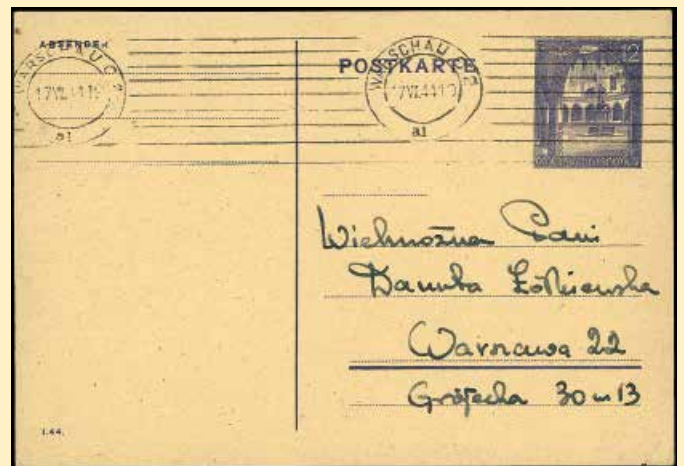 ABSENDER
WARSCHAU C 2
17.VI.44.19
a1
POSTKARTE
WARSCHAU C 2
17.VI.44.19
a1
12
Wielmożna Pani
Danuta Żółkiewska
Warszawa 22
Grójecka 30 m 13
1.44.